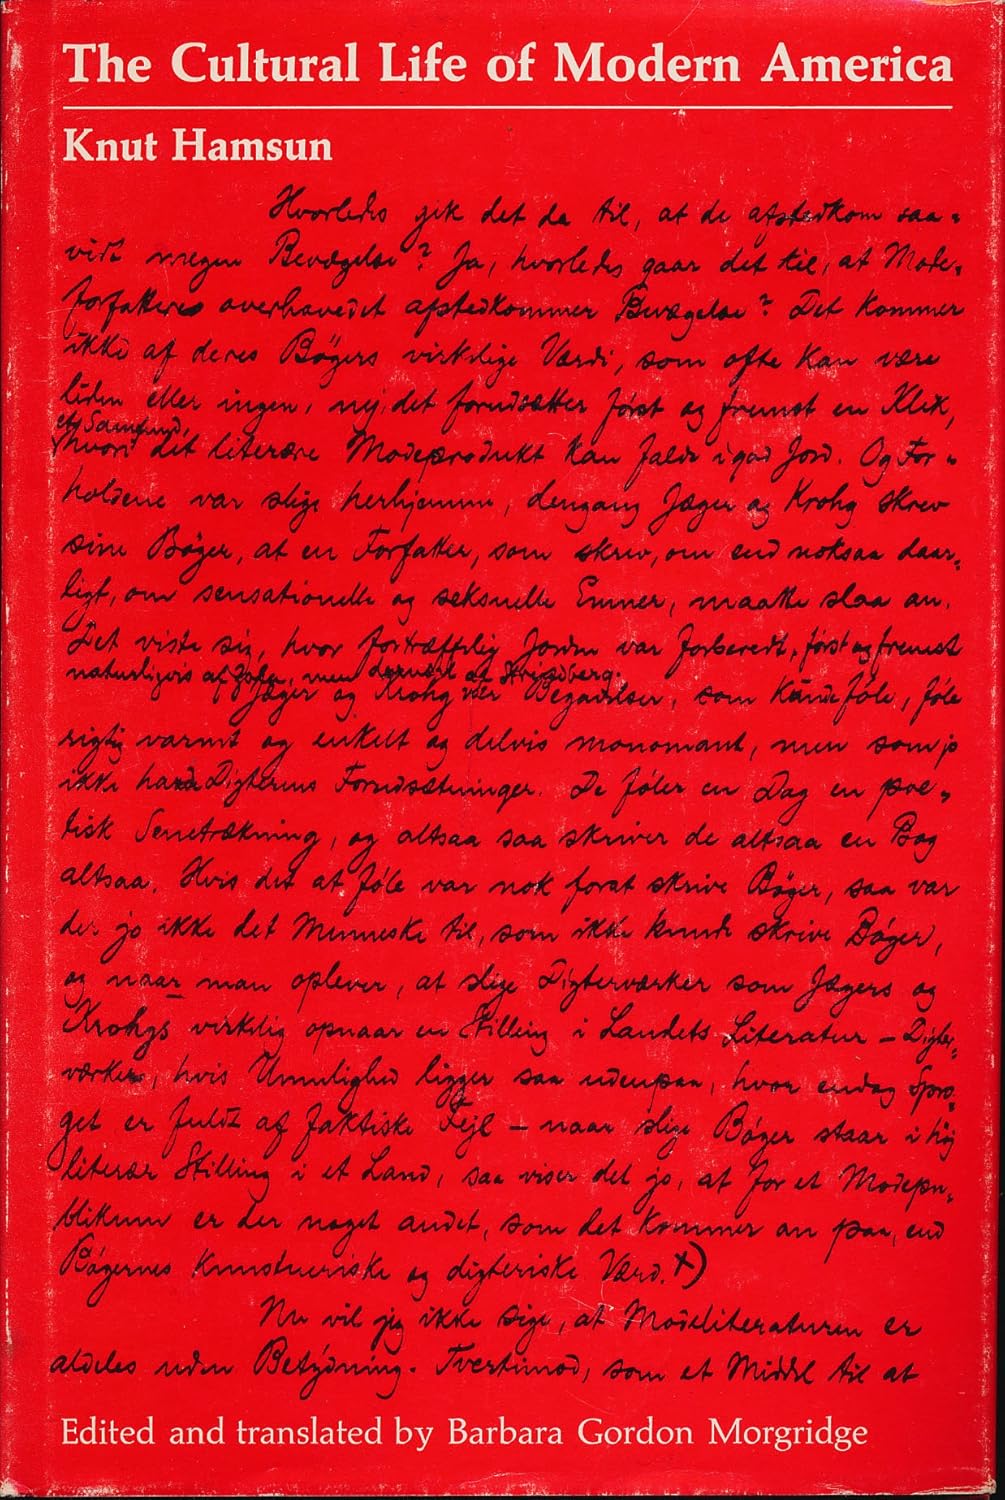 The Cultural Life of Modern America
Knut Hamsun
Hvorledes gik det da til, at de afstedkom saa-
vidt megen Bevægelse? Ja, hvorledes gaar det til, at Mode-
forfatteres overhovedet afstedkommer Bevægelse? Det kommer
ikke af deres Bøgers virkelige Værdi, som ofte kan være
liden eller ingen, nej, det forudsætter først og fremst en Klik,
et Samfund,
hvori det literære Modeprodukt kan falde i god Jord. Og For-
holdene var slige herhjemme, dengang Jæger og Krohg skrev
sine Bøger, at en Forfatter, som skrev, om end noksaa daar-
ligt, om sensationelle og seksuelle Emner, maatte slaa an.
Det viste sig, hvor fortræffelig Jorden var forberedt, først og fremst
naturligvis af Zola, men dernæst af Strindberg.
Jæger og Krohg var Begavelser, som kunde føle, føle
rigtig varmt og enkelt og delvis monomant, men som jo
ikke havde Digterens Forudsætninger. De føler en Dag en poe-
tisk Senetrækning, og altsaa saa skriver de altsaa en Bog
altsaa. Hvis det at føle var nok forat skrive Bøger, saa var
der jo ikke det Menneske til, som ikke kunde skrive Bøger,
og naar man oplever, at slige Digterværker som Jægers og
Krohgs virkelig opnaar en Stilling i Landets Literatur – Digter-
værker, hvis Umulighed ligger saa udenpaa, hvor endog Spro-
get er fuldt af faktiske Fejl – naar slige Bøger staar i høj
literær Stilling i et Land, saa viser det jo, at for et Modepu-
blikum er der noget andet, som det kommer an paa, end
Bøgernes kunstneriske og digteriske Værd. x)
Nu vil jeg ikke sige, at Modeliteraturen er
aldeles uden Betydning. Tvertimod, som et Middel til at
Edited and translated by Barbara Gordon Morgridge